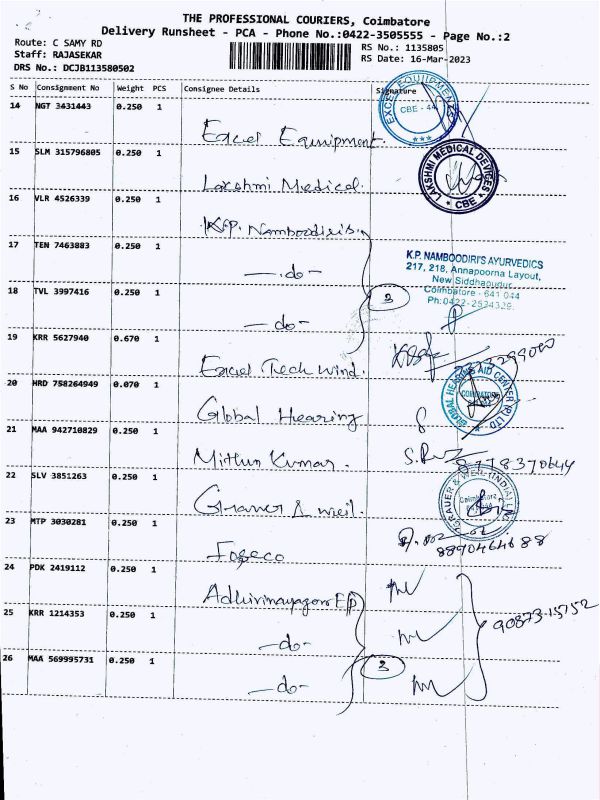 THE PROFESSIONAL COURIERS, Coimbatore
Delivery Runsheet - PCA - Phone No.:0422-3505555 - Page No.:2
Route: C SAMY RD
RS No.: 1135805
Staff: RAJASEKAR
RS Date: 16-Mar-2023
DRS No.: DCJB113580502
S No Consignment No Weight PCS Consignee Details Signature
14 NGT 3431443 0.250 1
EXCEL EQUIPMENTS
CBE - 44
Excel Equipment
15 SLM 315796805 0.250 1
LAKSHMI MEDICAL DEVICES
CBE
Lakshmi Medical
16 VLR 4526339 0.250 1
K.P. Namboodiris
17 TEN 7463883 0.250 1
- do -
K.P. NAMBOODIRI'S AYURVEDICS
217, 218, Annapoorna Layout,
New Siddhapudur
Coimbatore - 641 044
Ph:0422-2524328
18 TVL 3997416 0.250 1
3
- do -
19 KRR 5627940 0.670 1
Excel Tech Wind.
20 HRD 758264949 0.070 1
GLOBAL HEARING AID CENTER (P) LTD
COIMBATORE
Global Hearing
21 MAA 942710829 0.250 1
Mithun Kumar.
22 SLV 3851263 0.250 1
GRAUER & WEIL (INDIA) LTD
Coimbatore
Grauer & weil.
23 MTP 3030281 0.250 1
8890464688
Foseco
24 PDK 2419112 0.250 1
25 KRR 1214353 0.250 1
90873-15752
- do -
26 MAA 569995731 0.250 1
3
- do -